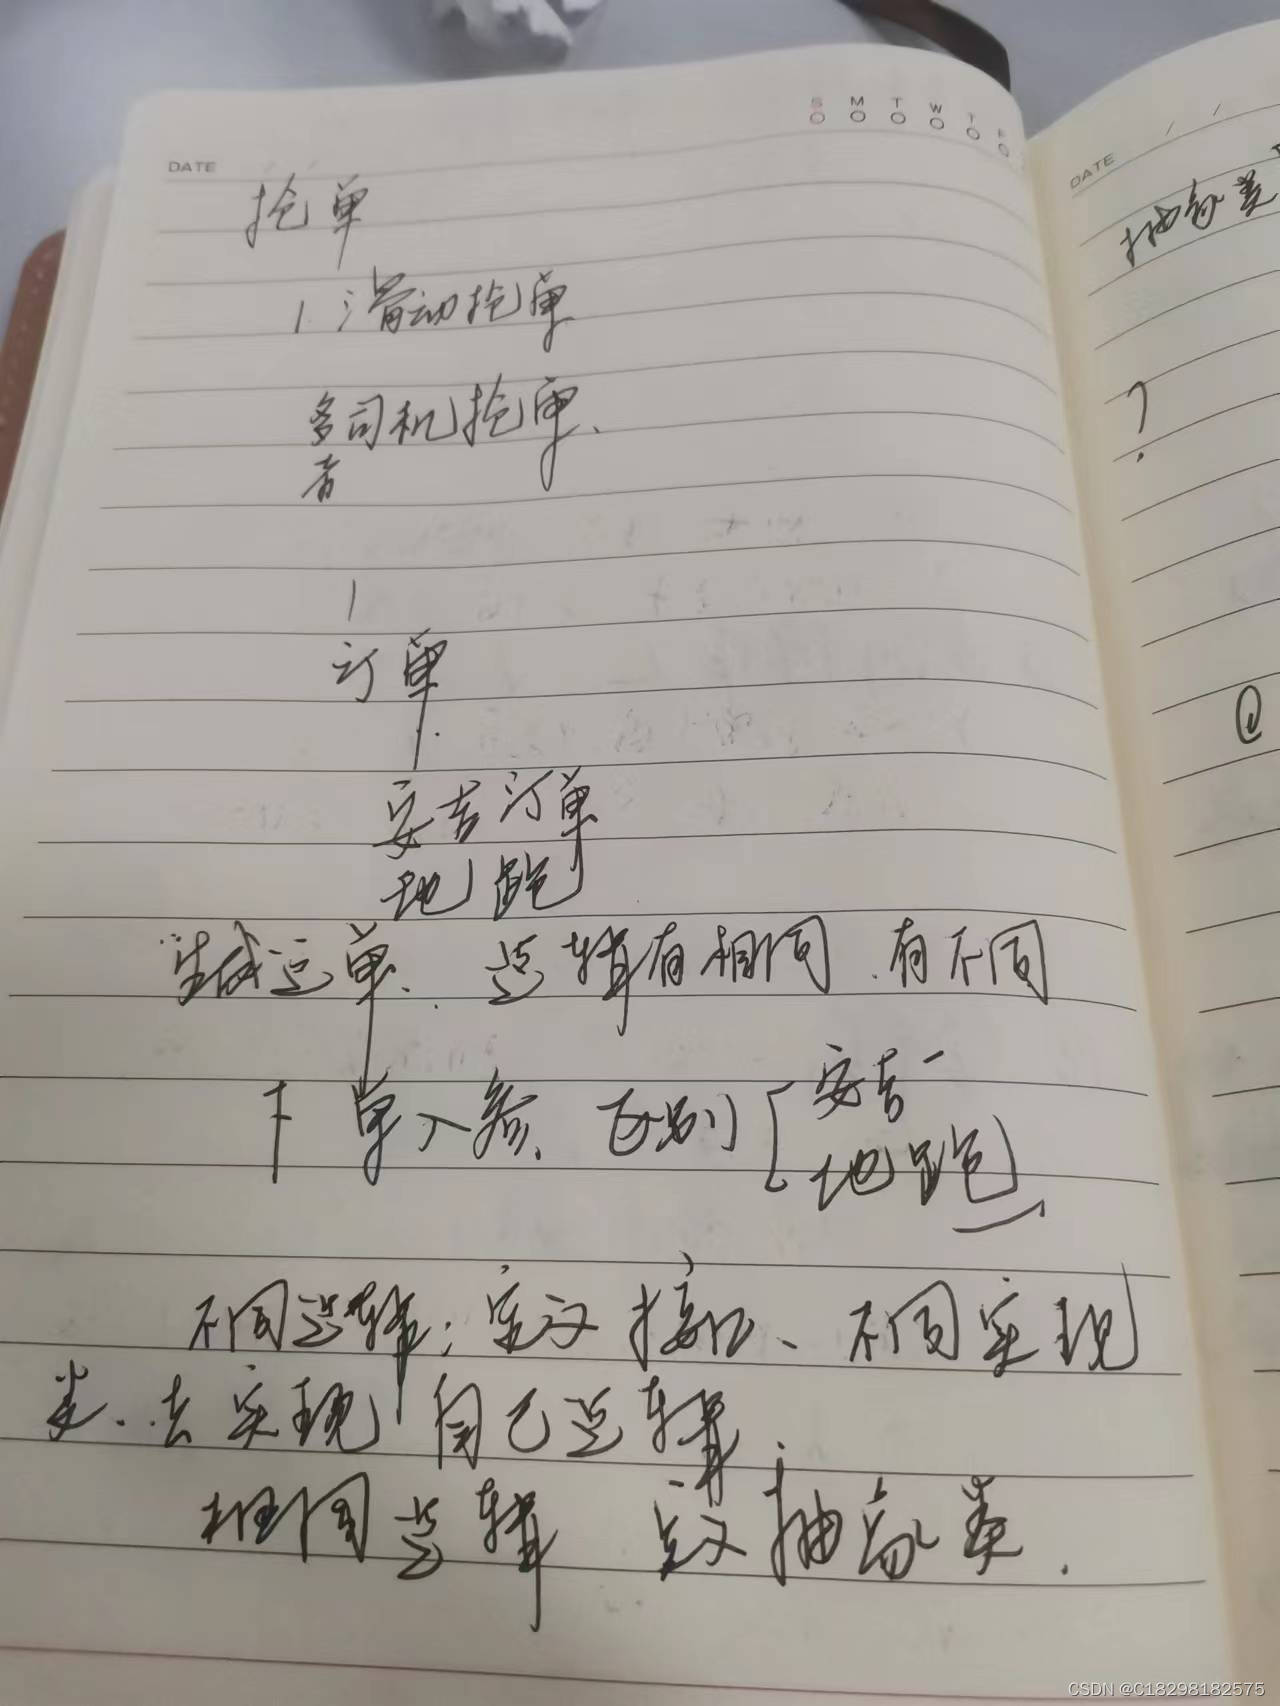 DATE
S M T W T F
抢单
1 滑动抢单
多司机抢单、
者
1
订单
安吉订单
地跑
生成运单. 逻辑有相同.有不同
下单入参、区别[安吉
地跑
不同逻辑:定义接口、不同实现
类.去实现自己逻辑.
相同逻辑 定义抽象类.
DATE / /
抽象类
?
@
CSDN @C18298182575